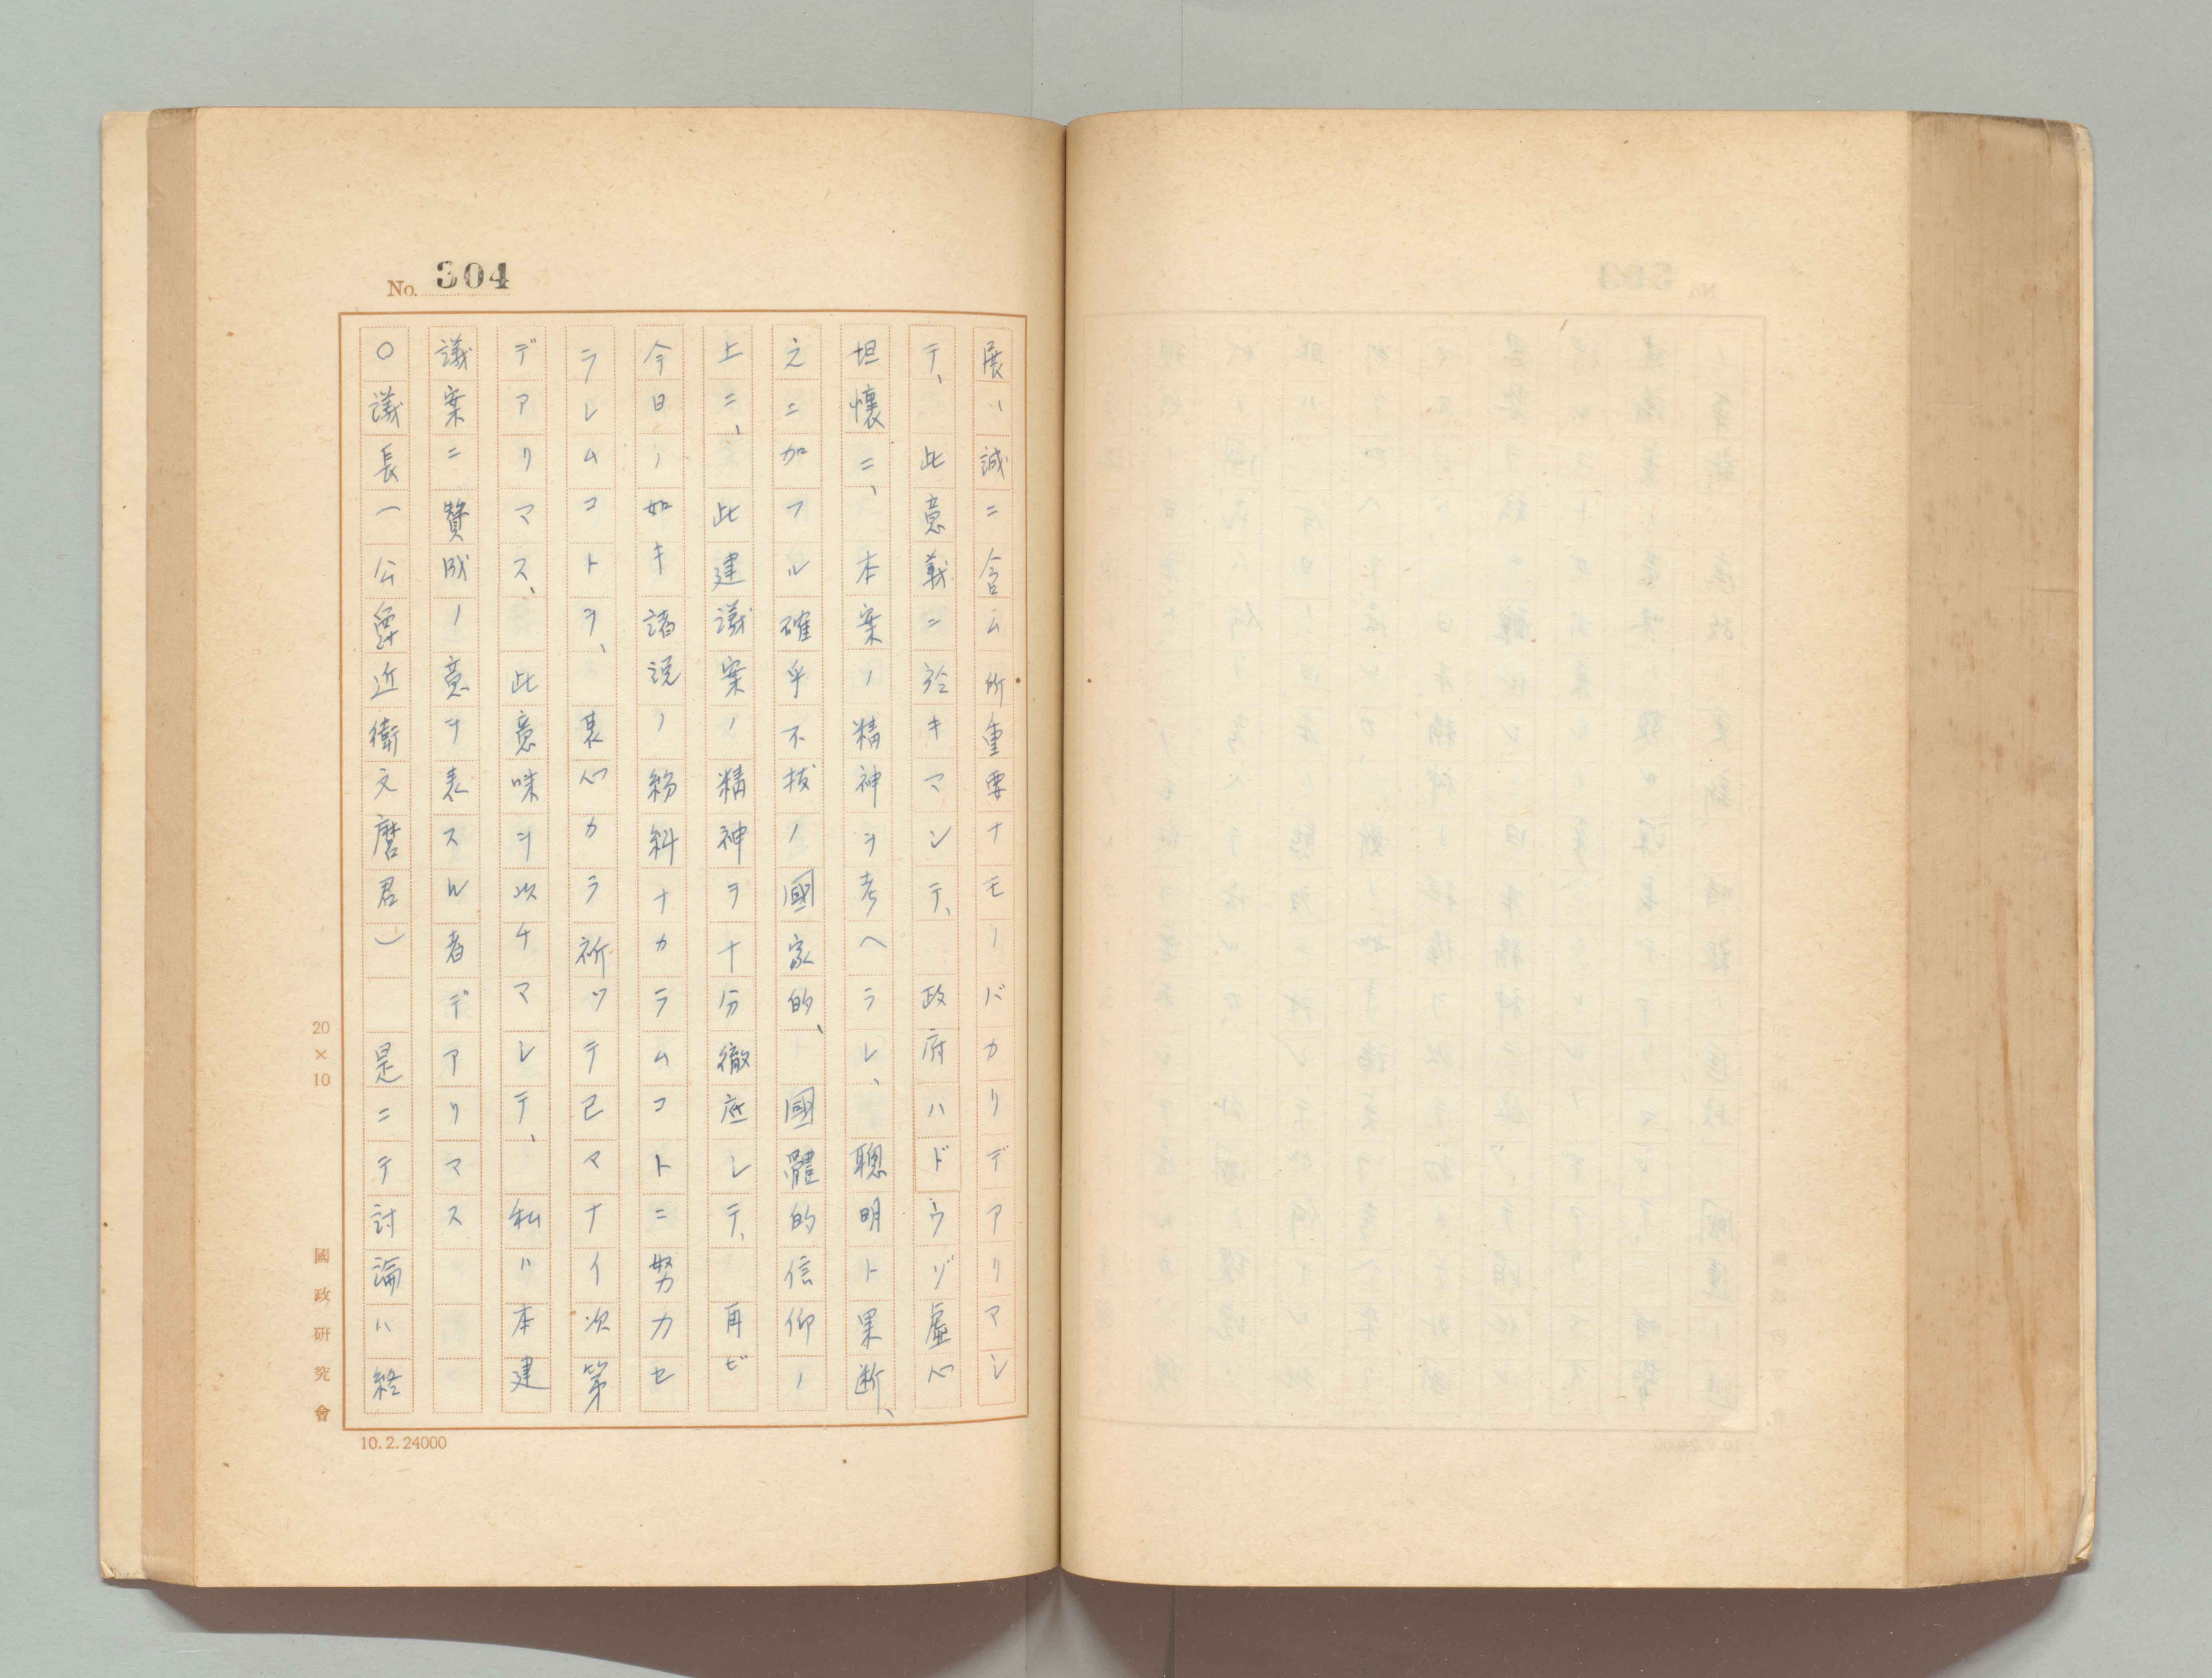 No. 304
展ハ誠ニ含ム所重要ナモノバカリデアリマシ
テ、此意義ニ於キマシテ、政府ハドウゾ虚心
坦懐ニ、本案ノ精神ヲ考ヘラレ、聰明ト果断、
之ニ加フル確乎不拔ノ國家的、國體的信仰ノ
上ニ、此建議案ノ精神ヲ十分徹底シテ、再ビ
今日ノ如キ諸説ノ紛糾ナカラムコトニ努力セ
ラレムコトヲ、衷心カラ祈ツテ已マナイ次第
デアリマス、此意味ヲ以チマシテ、私ハ本建
議案ニ贊成ノ意ヲ表スル者デアリマス
〇議長(公爵近衞文麿君) 是ニテ討論ハ終
20×10
國政研究會
10.2.24000